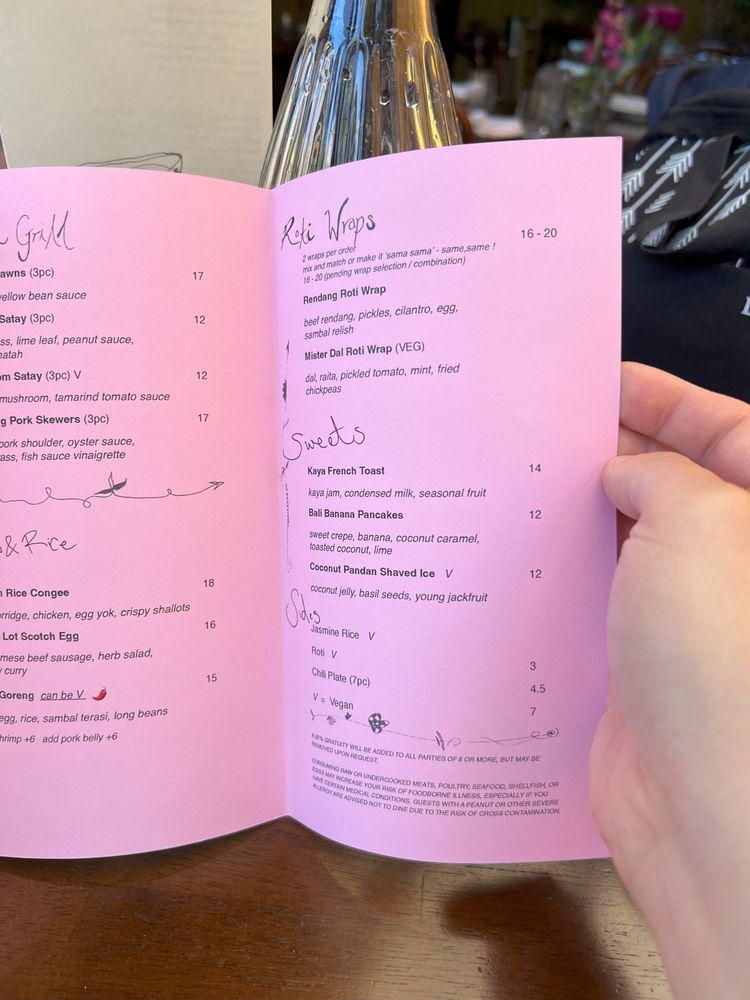 Grill
awns (3pc) 17
yellow bean sauce
Satay (3pc) 12
ss, lime leaf, peanut sauce,
natah
om Satay (3pc) V 12
mushroom, tamarind tomato sauce
g Pork Skewers (3pc) 17
pork shoulder, oyster sauce,
rass, fish sauce vinaigrette
&Rice
n Rice Congee 18
orridge, chicken, egg yok, crispy shallots
Lot Scotch Egg 16
mese beef sausage, herb salad,
y curry
Goreng can be V 15
egg, rice, sambal terasi, long beans
hrimp +6 add pork belly +6
Roti Wraps 16 - 20
2 wraps per order
mix and match or make it 'sama sama' - same,same !
16 - 20 (pending wrap selection / combination)
Rendang Roti Wrap
beef rendang, pickles, cilantro, egg,
sambal relish
Mister Dal Roti Wrap (VEG)
dal, raita, pickled tomato, mint, fried
chickpeas
Sweets
Kaya French Toast 14
kaya jam, condensed milk, seasonal fruit
Bali Banana Pancakes 12
sweet crepe, banana, coconut caramel,
toasted coconut, lime
Coconut Pandan Shaved Ice V 12
coconut jelly, basil seeds, young jackfruit
Sides
Jasmine Rice V 3
Roti V 4.5
Chili Plate (7pc) 7
V = Vegan
A 20% GRATUITY WILL BE ADDED TO ALL PARTIES OF 6 OR MORE, BUT MAY BE
REMOVED UPON REQUEST.
CONSUMING RAW OR UNDERCOOKED MEATS, POULTRY, SEAFOOD, SHELLFISH, OR
EGGS MAY INCREASE YOUR RISK OF FOODBORNE ILLNESS, ESPECIALLY IF YOU
HAVE CERTAIN MEDICAL CONDITIONS. GUESTS WITH A PEANUT OR OTHER SEVERE
ALLERGY ARE ADVISED NOT TO DINE DUE TO THE RISK OF CROSS CONTAMINATION.